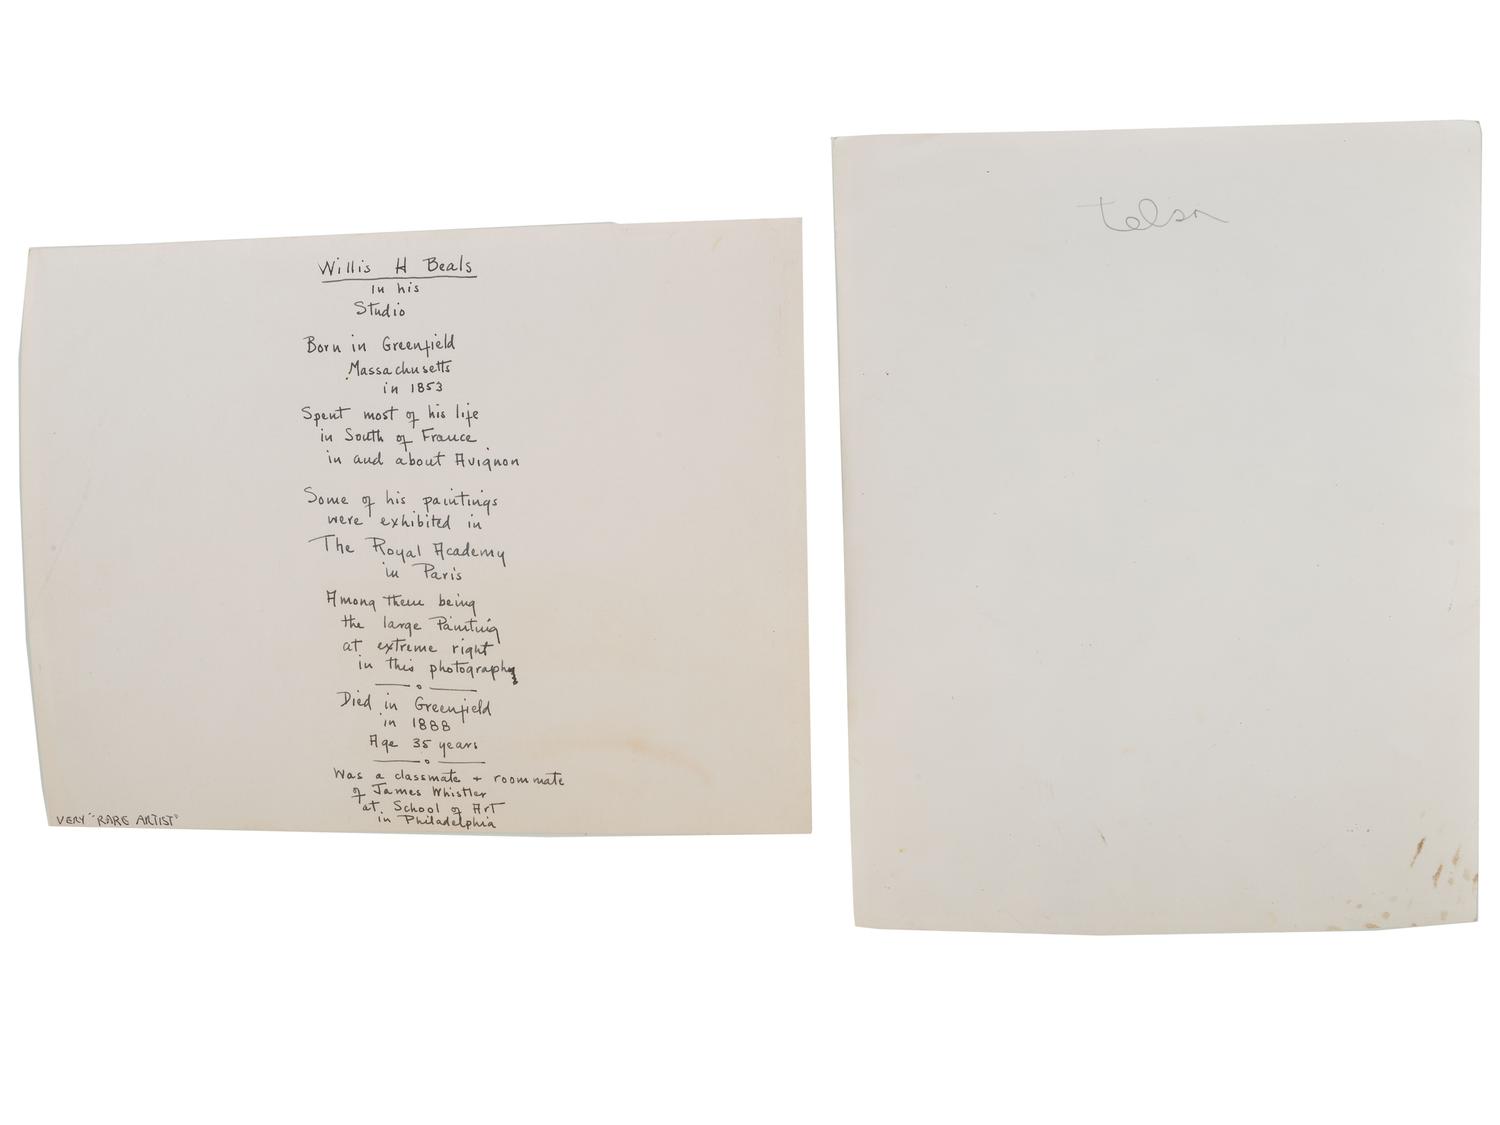 Willis H Beals
in his
Studio
Born in Greenfield
Massachusetts
in 1853
Spent most of his life
in South of France
in and about Avignon
Some of his paintings
were exhibited in
The Royal Academy
in Paris
Among them being
the large Painting
at extreme right
in this photography
Died in Greenfield
in 1888
Age 35 years
Was a classmate + roommate
of James Whistler
at School of Art
in Philadelphia
VERY "RARE ARTIST"